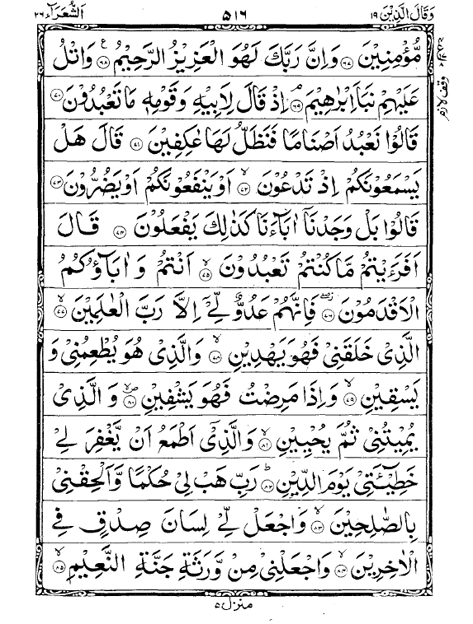 وَقَالَ الَّذِيْنَ ١٩ ٥١٦ اَلشُّعَرَآء ٢٦
مُّؤْمِنِيْنَ ۝٦٧ وَاِنَّ رَبَّكَ لَهُوَ الْعَزِيْزُ الرَّحِيْمُ ۝٦٨ وَاتْلُ
عَلَيْهِمْ نَبَاَ اِبْرٰهِيْمَ ۝٦٩ اِذْ قَالَ لِاَبِيْهِ وَقَوْمِهٖ مَا تَعْبُدُوْنَ ۝٧٠
قَالُوْا نَعْبُدُ اَصْنَامًا فَنَظَلُّ لَهَا عٰكِفِيْنَ ۝٧١ قَالَ هَلْ
يَسْمَعُوْنَكُمْ اِذْ تَدْعُوْنَ ۝٧٢ اَوْ يَنْفَعُوْنَكُمْ اَوْ يَضُرُّوْنَ ۝٧٣
قَالُوْا بَلْ وَجَدْنَآ اٰبَآءَنَا كَذٰلِكَ يَفْعَلُوْنَ ۝٧٤ قَالَ
اَفَرَءَيْتُمْ مَّا كُنْتُمْ تَعْبُدُوْنَ ۝٧٥ اَنْتُمْ وَ اٰبَآؤُكُمُ
الْاَقْدَمُوْنَ ۝٧٦ فَاِنَّهُمْ عَدُوٌّ لِّيْٓ اِلَّا رَبَّ الْعٰلَمِيْنَ ۝٧٧
الَّذِيْ خَلَقَنِيْ فَهُوَ يَهْدِيْنِ ۝٧٨ وَالَّذِيْ هُوَ يُطْعِمُنِيْ وَ
يَسْقِيْنِ ۝٧٩ وَاِذَا مَرِضْتُ فَهُوَ يَشْفِيْنِ ۝٨٠ وَ الَّذِيْ
يُمِيْتُنِيْ ثُمَّ يُحْيِيْنِ ۝٨١ وَالَّذِيْٓ اَطْمَعُ اَنْ يَّغْفِرَ لِيْ
خَطِيْٓئَتِيْ يَوْمَ الدِّيْنِ ۝٨٢ رَبِّ هَبْ لِيْ حُكْمًا وَّاَلْحِقْنِيْ
بِالصّٰلِحِيْنَ ۝٨٣ وَاجْعَلْ لِّيْ لِسَانَ صِدْقٍ فِي
الْاٰخِرِيْنَ ۝٨٤ وَاجْعَلْنِيْ مِنْ وَّرَثَةِ جَنَّةِ النَّعِيْمِ ۝٨٥
منزل ٥
وقف لازم